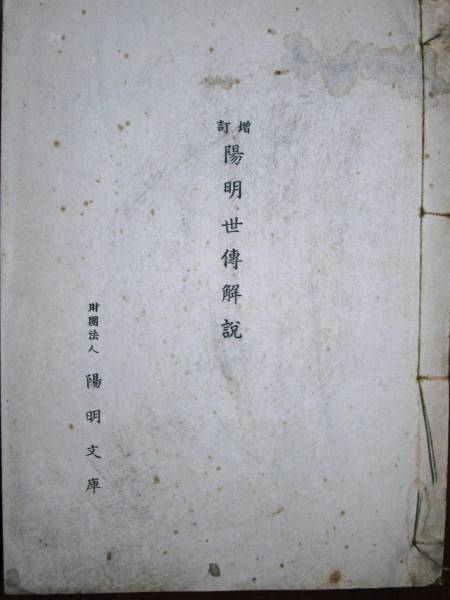 增訂
陽明世傳解說
財團法人 陽明文庫